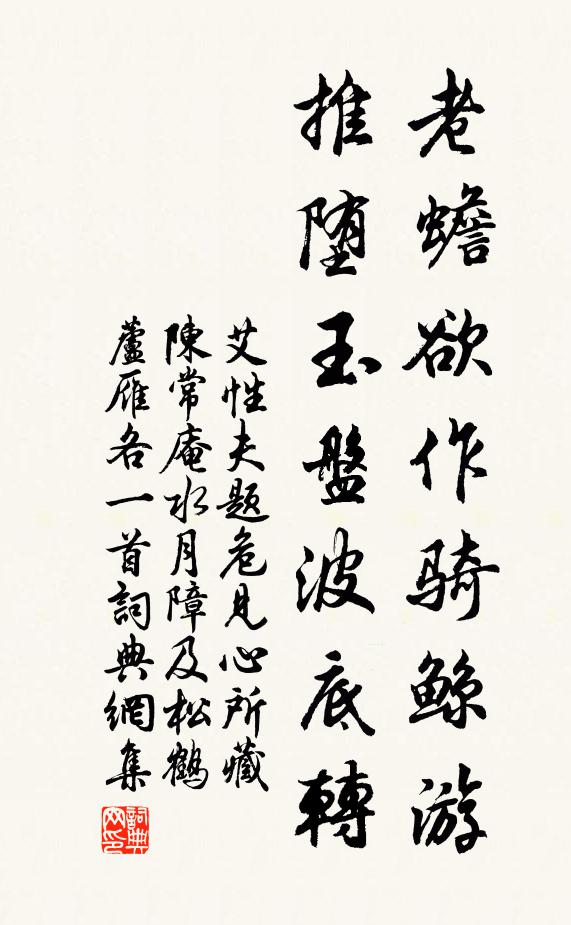 老蟾欲作骑鲸游
推堕玉盤波底轉
艾性夫题危見心所藏
陳常庵水月障及松鶴
蘆雁各一首詞典網集
詞典
网印